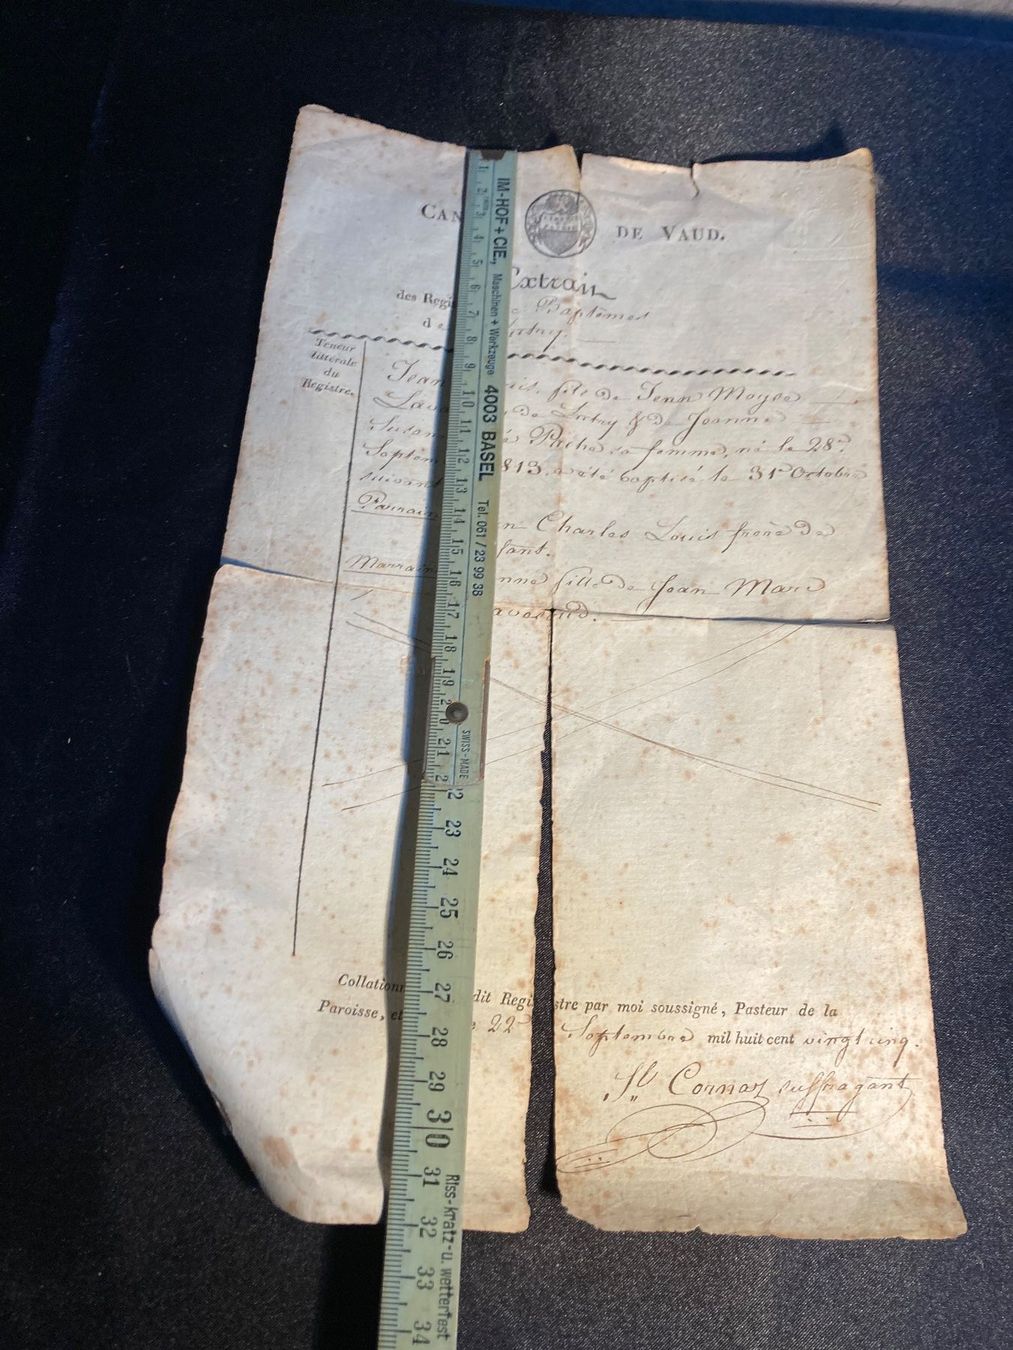 CAN DE VAUD.
Extrait
des Regi Baptêmes
d
Teneur
littérale
du
Registre.
Jean is, fils de Jenn Moyse
Lava de Lutry & d Jeanne
Suzan Pache sa femme, né le 28e
Septem 813. a été baptisé le 31e Octobre
suivant
Parrain n Charles Louis frère de
fant.
Marrain nne fille de Jean Marc
avo
Collationn dit Registre par moi soussigné, Pasteur de la
Paroisse, et 22e Septembre mil huit cent vingt cinq.
Cornaz suffragant
IM-HOF + CIE, Maschinen + Werkzeuge 4003 BASEL Tel. 061 / 23 99 38
SWISS-MADE
Riss-kratz-u. wetterfest
1 2 3 4 5 6 7 8 9 10 11 12 13 14 15 16 17 18 19 20 21 22 23 24 25 26 27 28 29 30 31 32 33 34